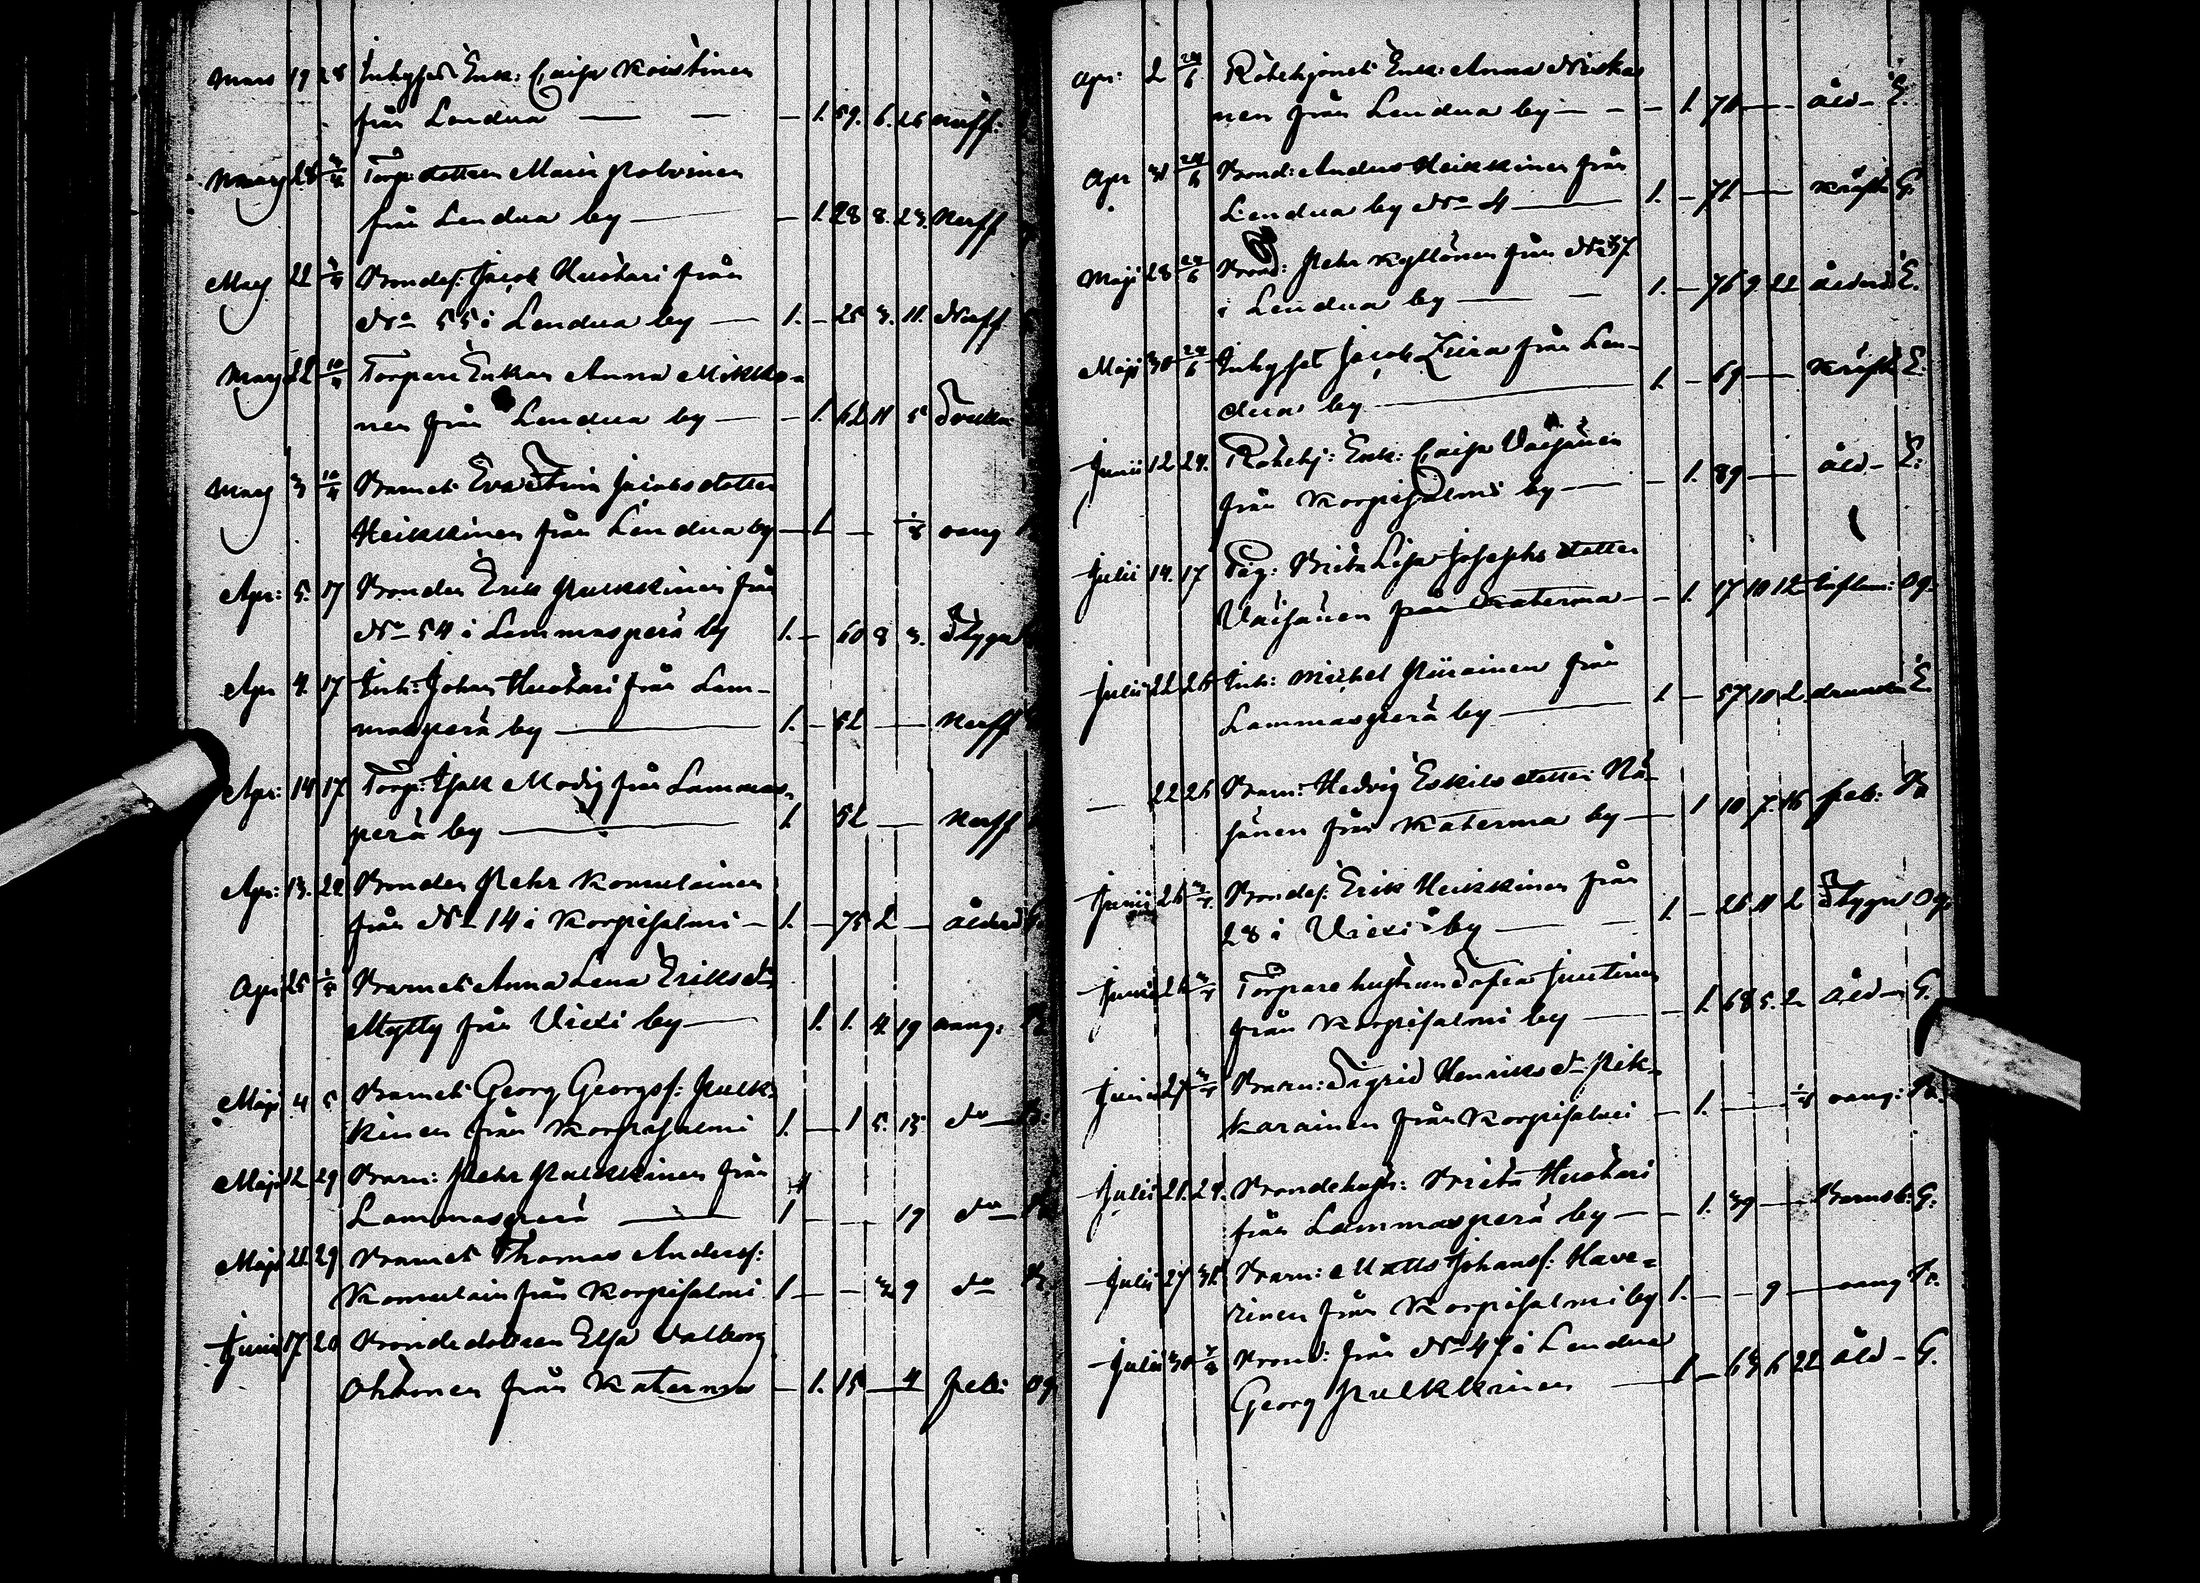 Mars 19 28 Inhyses Enk: Caisa Koistinen
från Lendua — — — 1. 59. 6. 26 Nerff:
28 Torp: dottren Maria
från Lendua by — — 1. 28 8. 23. Nerff
22 Bondes: Jacob Huotari från
No 55 i Lendua by — 1. — 25 3. 11. Nerff
22 10/4 Torpare Enkan Anna Mikko-
nen från Lendua by — — 1. 62 11 5
3 10/4 Barnet Eva Stina Jacobsdotter
Heikkinen från Lendua by — 1 — oang
Apr: 5. 17 Bonden Erik Pulkkinen från
No 54 i Lammasperä by 1. — 60 8 3. Stygn
Apr 4. 17 Inh: Johan Huotari från Lam-
masperä by — 1. — 52 — Nerff
Apr: 14 17 Torp: Isak Modig från Lammas-
perä by — 1. 52 — Nerff
Apr: 13. 22 Bonden Pehr Komulainen
från No 14 i Korpisalmi — 1. — 75 2 — ålderd
Apr 25 Barnet Anna Lena Eriksdr
Mylly från Viexi by — 1. 1. 4. 19 oang:
Maji 4 5 Barnet Georg Georgs: Pulk-
kinen från Korpisalmi 1. — 1 5. 15 do —
Maji 12 29 Barn: Pehr Pulkkinen från
Lammasperä — 1 — — 19 do —
Maji 22 29 Barnet Thomas Anders:
Komulain från Korpisalmi 1 — — 9 do
Junii 17 20 Bondedottren Elsa Valborg
Ohtonen från Katerma — 1. 15 — 4 feb:
Apr: 2 24/6 Rotehjonet Enk: Anna Niska
nen från Lendua by — — — 1. 71 — åld — E.
Apr 24/6 Bond: Anders Heikkinen från
Lendua by No 4 — 1. — 71 — kräft G
Maji 28 24/6 Bond: Pehr Kyllönen från No 37
i Lendua by — — 1. — 76 9 22 ålderd E.
Maji 30 24/6 Inhyses Jacob från Len-
dua by — 1. — 69 — kräft E.
Junii 12 24. Rotehj: Enk: Caisa Väisänen
från Korpisalmi by — — 1. 89 — åld — E:
Julii 14. 17 Pig: Brita Lisa Josephsdotter
Väisänen från Katerma — — 1. 17 10 12 inflam:
Julii 22 26 Inh: Michel Piirainen från
Lammasperä by — 1 — 57 10 2 E.
— 22 26 Barn: Hedvig Eskilsdotter Vä-
sänen från Katerma by — 1 10 7. 16 feb:
Junii 26 Bondes: Erik Heikkinen från
28 i Viexi by — — 1. — 26 11 2 Stygn
Junii 26 Torpare hustrun Sofia Juntinen
från Korpisalmi by — — 1. 68 5. 2 åld — G.
Junii 27 Barn: Sigrid Henriksdr Pik-
karainen från Korpisalmi — 1. — — oang:
Julii 21. 24. Bondehustr: Brita Huotari
från Lammasperä by — — 1. 39 — — Barnsb: G:
Julii 27 31 Barn: Matts Johans: Have-
rinen från Korpisalmi by 1. — — 9 — oang
Julii 30 Bond: från No 47 i Lendua
Georg Pulkkinen — 1 — 63 6 22 åld — G.